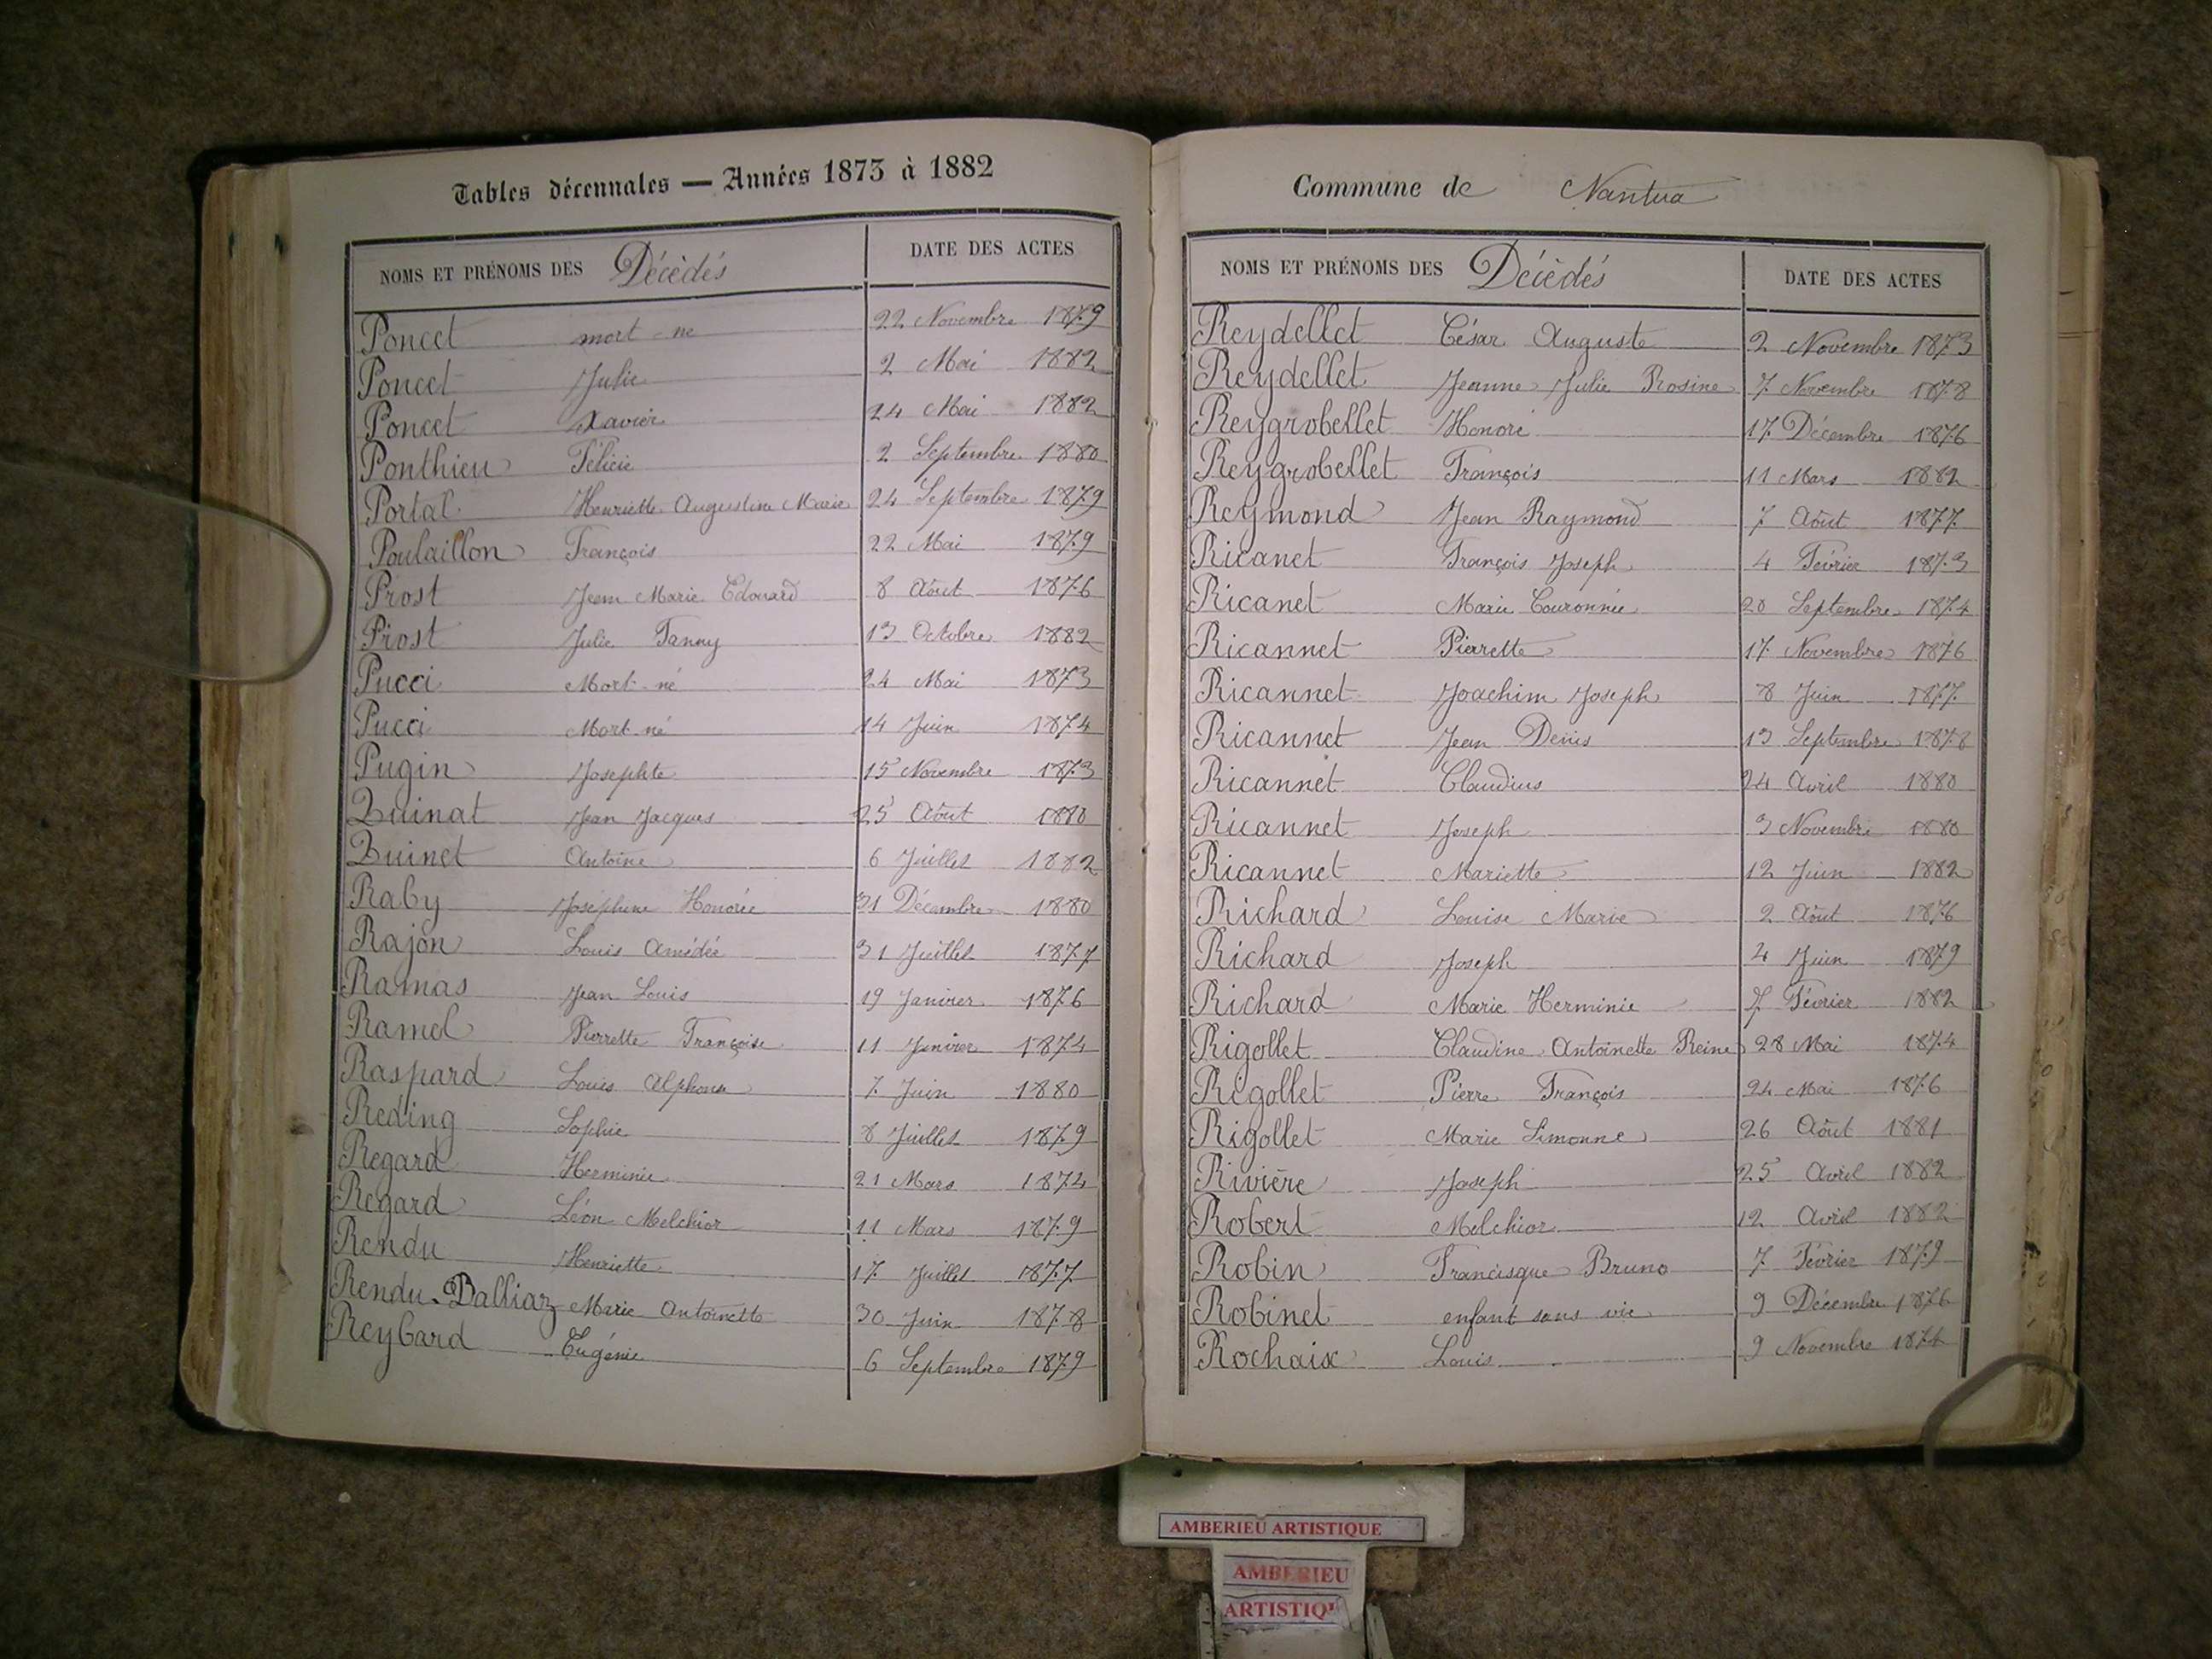 Tables décennales — Années 1873 à 1882
NOMS ET PRÉNOMS DES Décédés DATE DES ACTES
Poncet mort-né 22 Novembre 1879
Poncet Julie 2 Mai 1882
Poncet Xavier 24 Mai 1882
Ponthieu Félicie 2 Septembre 1880
Portal Henriette Augustine Marie 24 Septembre 1879
Poulaillon François 22 Mai 1879
Prost Jean Marie Edouard 8 Août 1876
Prost Julie Fanny 13 Octobre 1882
Pucci Mort-né 24 Mai 1873
Pucci Mort-né 14 Juin 1874
Pugin Josephte 15 Novembre 1873
Quinat Jean Jacques 25 Août 1880
Quinet Antoine 6 Juillet 1882
Raby Joséphine Honorée 31 Décembre 1880
Rajon Louis Amédée 31 Juillet 1877
Ramas Jean Louis 19 Janvier 1876
Ramel Pierrette Françoise 11 Janvier 1874
Raspard Louis Alphonse 7 Juin 1880
Reding Sophie 8 Juillet 1879
Regard Herminie 21 Mars 1874
Regard Léon Melchior 11 Mars 1879
Rendu Henriette 17 Juillet 1877
Rendu-Balliaz Marie Antoinette 30 Juin 1878
Reybard Eugénie 6 Septembre 1879
Commune de Nantua
NOMS ET PRÉNOMS DES Décédés DATE DES ACTES
Reydellet César Auguste 2 Novembre 1873
Reydellet Jeanne Julie Rosine 7 Novembre 1878
Reygrobellet Honoré 17 Décembre 1876
Reygrobellet François 11 Mars 1882
Reymond Jean Raymond 7 Août 1877
Ricanet François Joseph 4 Février 1873
Ricanet Marie Couronnée 20 Septembre 1874
Ricannet Pierrette 17 Novembre 1876
Ricannet Joachim Joseph 8 Juin 1877
Ricannet Jean Denis 13 Septembre 1878
Ricannet Claudius 24 Avril 1880
Ricannet Joseph 3 Novembre 1880
Ricannet Mariette 12 Juin 1882
Richard Louise Marie 2 Août 1876
Richard Joseph 4 Juin 1879
Richard Marie Herminie 7 Février 1882
Rigollet Claudine Antoinette Reine 28 Mai 1874
Rigollet Pierre François 24 Mai 1876
Rigollet Marie Simonne 26 Août 1881
Rivière Joseph 25 Avril 1882
Robert Melchior 12 Avril 1882
Robin Francisque Bruno 7 Février 1879
Robinet enfant sans vie 9 Décembre 1876
Rochaix Louis 9 Novembre 1874
AMBERIEU ARTISTIQUE
AMBERIEU
ARTISTIQU